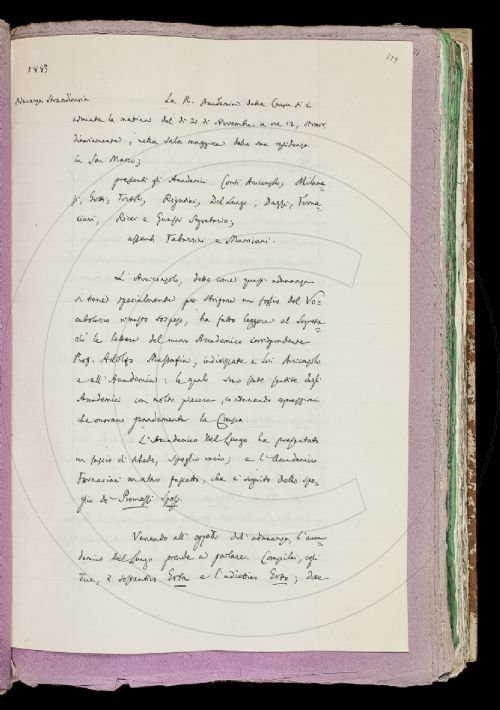 379
1883
Adunanza Straordinaria
La R. Accademia della Crusca si è
adunata la mattina del dì 21 di Novembre a ore 12, straor-
dinariamente, nella Sala maggiore della sua residenza
in San Marco;
presenti gli Accademici Conti Arciconsolo, Milane-
si, Gotti, Tortoli, Rigutini, Del Lungo, Dazzi, Forna-
ciari, Ricci e Guasti Segretario;
assenti Tabarrini e Mamiani.
L'Arciconsolo, detto come quest' adunanza
si tiene specialmente per stripare un foglio del Vo-
cabolario rimasto sospeso, ha fatto leggere al Segreta-
rio le lettere del nuovo Accademico corrispondente
Prof. Adolfo Mussafia, indirizzate a lui Arciconsolo
e all'Accademia: le quali sono state sentite dagli
Accademici con molto piacere, contenendo espressioni
che onorano grandemente la Crusca.
L'Accademico Del Lungo ha presentato
un fascio di schede, spoglio vario; e l'Accademico
Fornaciari un altro fascetto, che è seguito dello spo-
glio de' Promessi Sposi.
Venendo all' oggetto dell' adunanza, l'acca-
demico Del Lungo prende a parlare. Compilai, egli
dice, il sostantivo Erta e l'adiettivo Erto; dove